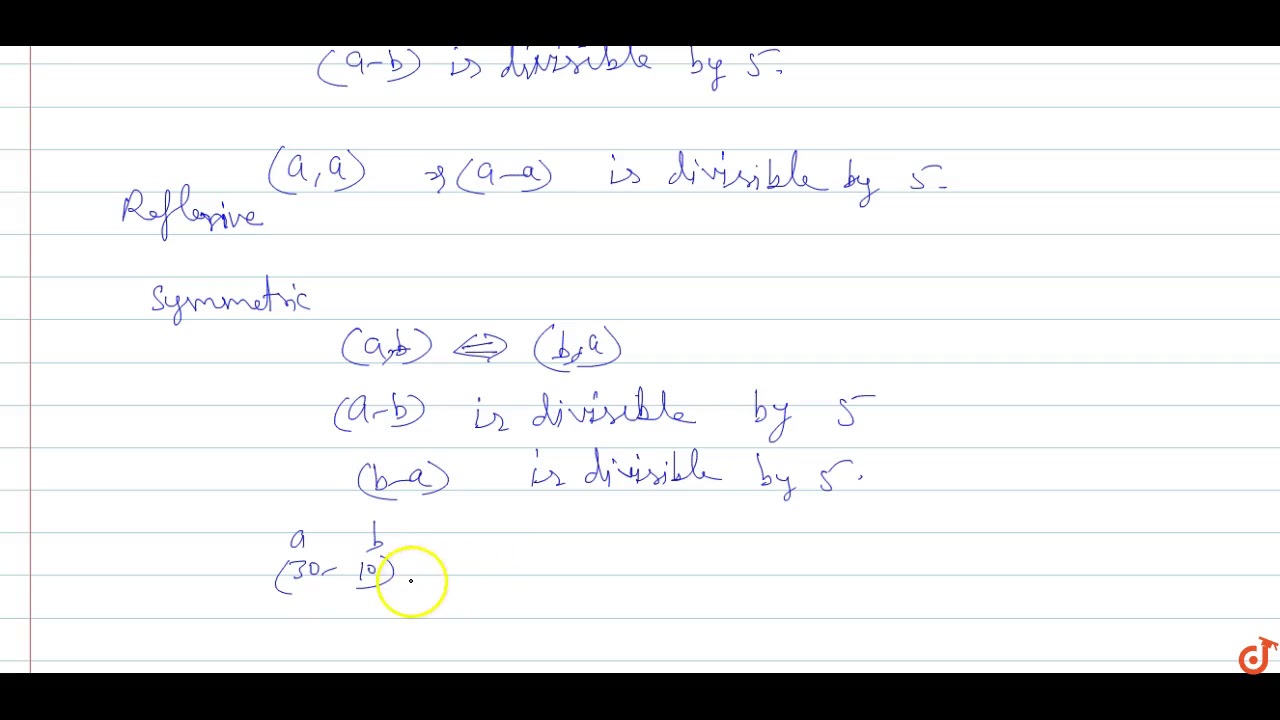 (a-b) is divisible by 5.
(a, a) ⇒ (a-a) is divisible by 5.
Reflexive
Symmetric
(a,b) ⇔ (b,a)
(a-b) is divisible by 5
(b-a) is divisible by 5.
a b
(30- 10)